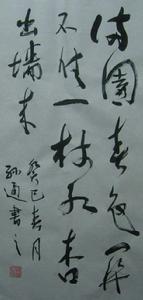 满園春色関
不住一枝红杏
出墙来
癸巳春月
孙通書之